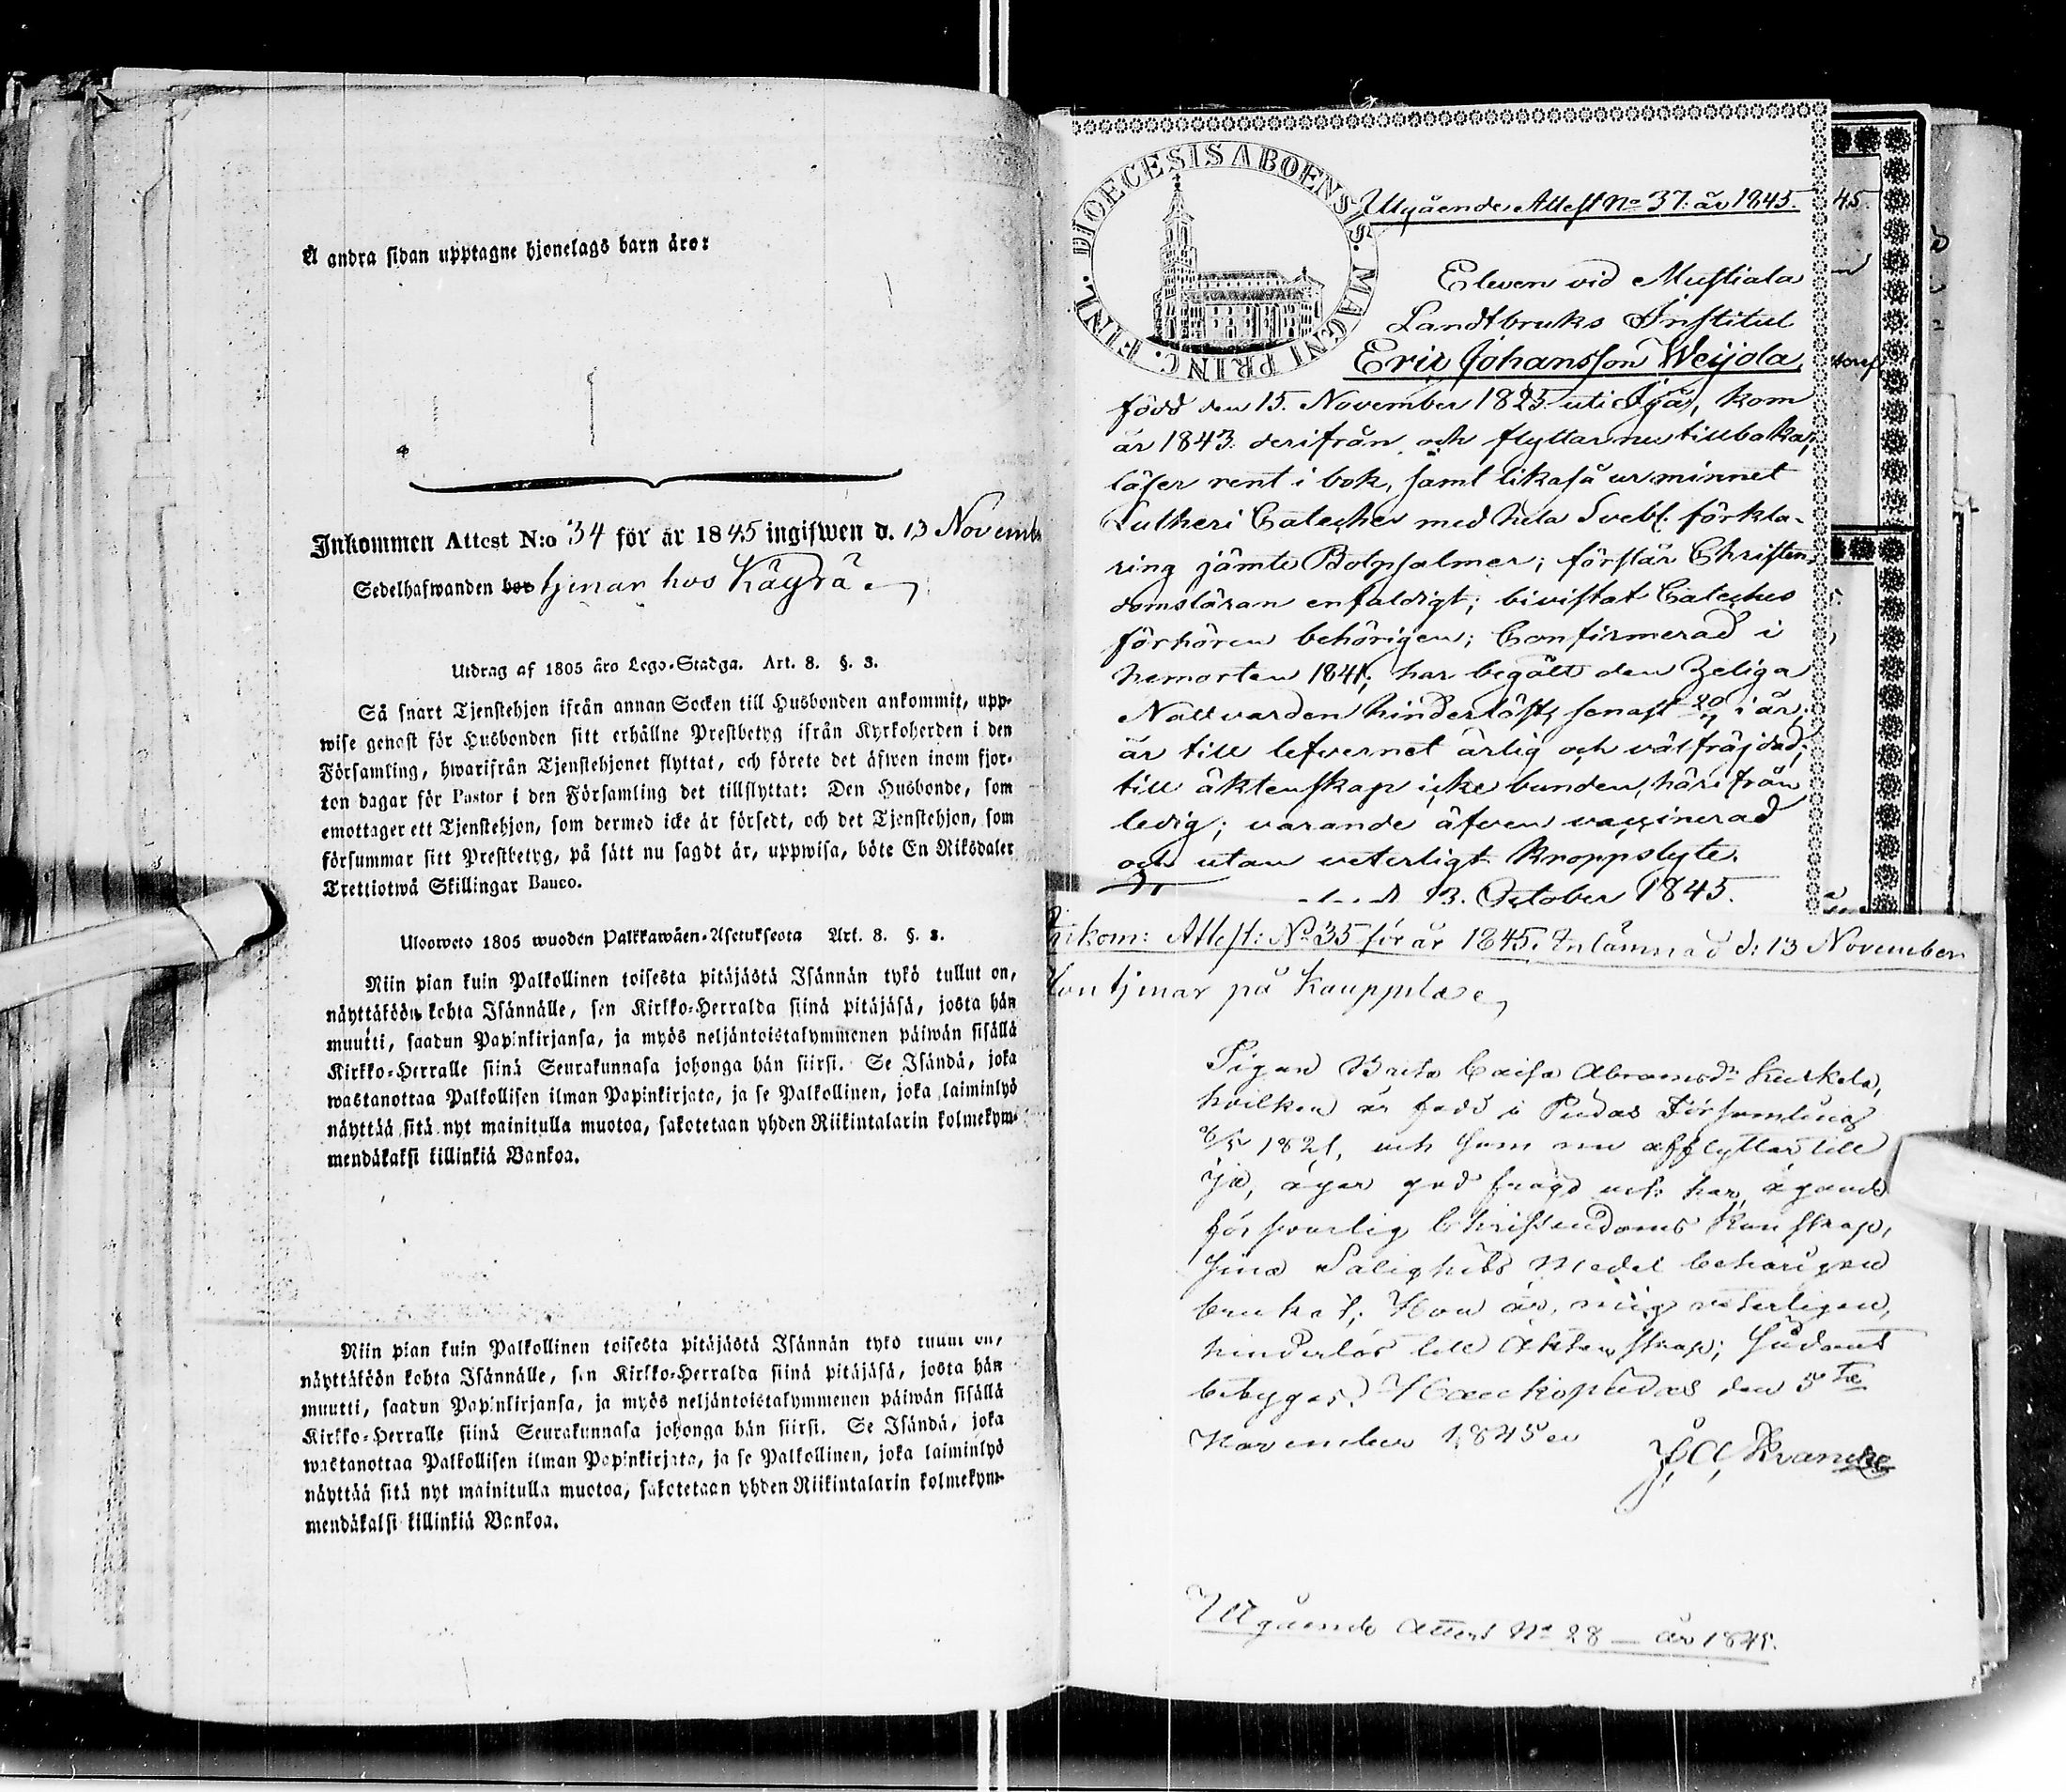 Å andra sidan upptagne hjonelags barn äro:
Inkommen Attest N:o 34 för år 1845 ingifwen d. 13 Novemb
Sedelhafwanden bor tjenar hos Käyrä
Utdrag af 1805 års Lego-Stadga. Art. 8. §. 3.
Så snart Tjenstehjon ifrån annan Socken till Husbonden ankommit, upp-
wise genast för Husbonden sitt erhållne Prestbetyg ifrån Kyrkoherden i den
Församling, hwarifrån Tjenstehjonet flyttat, och förete det äfwen inom fjor-
ton dagar för Pastor i den Församling det tillflyttat: Den Husbonde, som
emottager ett Tjenstehjon, som dermed icke är försedt, och det Tjenstehjon, som
försummar sitt Prestbetyg, på sätt nu sagdt är, uppwisa, böte En Riksdaler
Trettiotwå Skillingar Banco.
Ulosweto 1805 wuoden Palkkawäen-Asetuksesta Art. 8. §. 3.
Niin pian kuin Palkollinen toisesta pitäjästä Isännän tykö tullut on,
näyttäköön kohta Isännälle, sen Kirkko-Herralda siinä pitäjäsä, josta hän
muutti, saadun Papinkirjansa, ja myös neljäntoistakymmenen päiwän sisällä
Kirkko-Herralle siinä Seurakunnasa johonga hän siirsi. Se Isändä, joka
wastanottaa Palkollisen ilman Papinkirjata, ja se Palkollinen, joka laiminlyö
näyttää sitä nyt mainitulla muotoa, sakotetaan yhden Riikintalarin kolmekym-
mendäkaksi killinkiä Bankoa.
Niin pian kuin Palkollinen toisesta pitäjästä Isännän tykö tullut on,
näyttäköön kohta Isännälle, sen Kirkko-Herralda siinä pitäjäsä, josta hän
muutti, saadun Papinkirjansa, ja myös neljäntoistakymmenen päiwän sisällä
Kirkko-Herralle siinä Seurakunnasa johonga hän siirsi. Se Isändä, joka
wastanottaa Palkollisen ilman Papinkirjata, ja se Palkollinen, joka laiminlyö
näyttää sitä nyt mainitulla muotoa, sakotetaan yhden Riikintalarin kolmekym-
mendäkaksi killinkiä Bankoa.
DIOECESIS ABOENSIS. MAGNI PRINC. FINL.
Utgående Attest No 37. år 1845.
45.
Eleven vid Mustiala
Landtbruks Institut
Eric Johansson Weijola,
född den 15. November 1825 uti Ijå, kom
år 1843 derifrån och flyttar nu tillbaka;
läser rent i bok, samt likaså ur minnet
Lutheri Cateches med hela Svebl. förkla-
ring jämte Botpsalmer; förstår Christen-
domsläran enfaldigt; bivistat Cateches
förhören behörigen; Confirmerad i
hemorten 1841; har begått den Heliga
Nattvarden hinderlöst, senast i år;
är till lefvernet ärlig och välfräjdad;
till äktenskap icke bunden, härifrån
ledig; varande äfven vaccinerad
och utan veterligt kroppslyte.
13. October 1845.
Inkom: Attest: No 35 för år 1845. Inlämnad d: 13 November
Hon tjenar på Kauppila
Pigan Brita Caisa Abramsdr Kurkela,
hvilken är född i Pudas Församling
1821, och som nu afflyttar till
Ijo, äger god frägd och har, ägande
försvarlig Christendoms Kunskap,
sina Salighets Medel behörigen
brukat; Hon är, mig veterligen,
hinderlös till Äktenskap; Sådant
betygas. Haukipudas den 5te
November 1845
J. A. Kranck
Utgående Attest No 28 — år 1845.